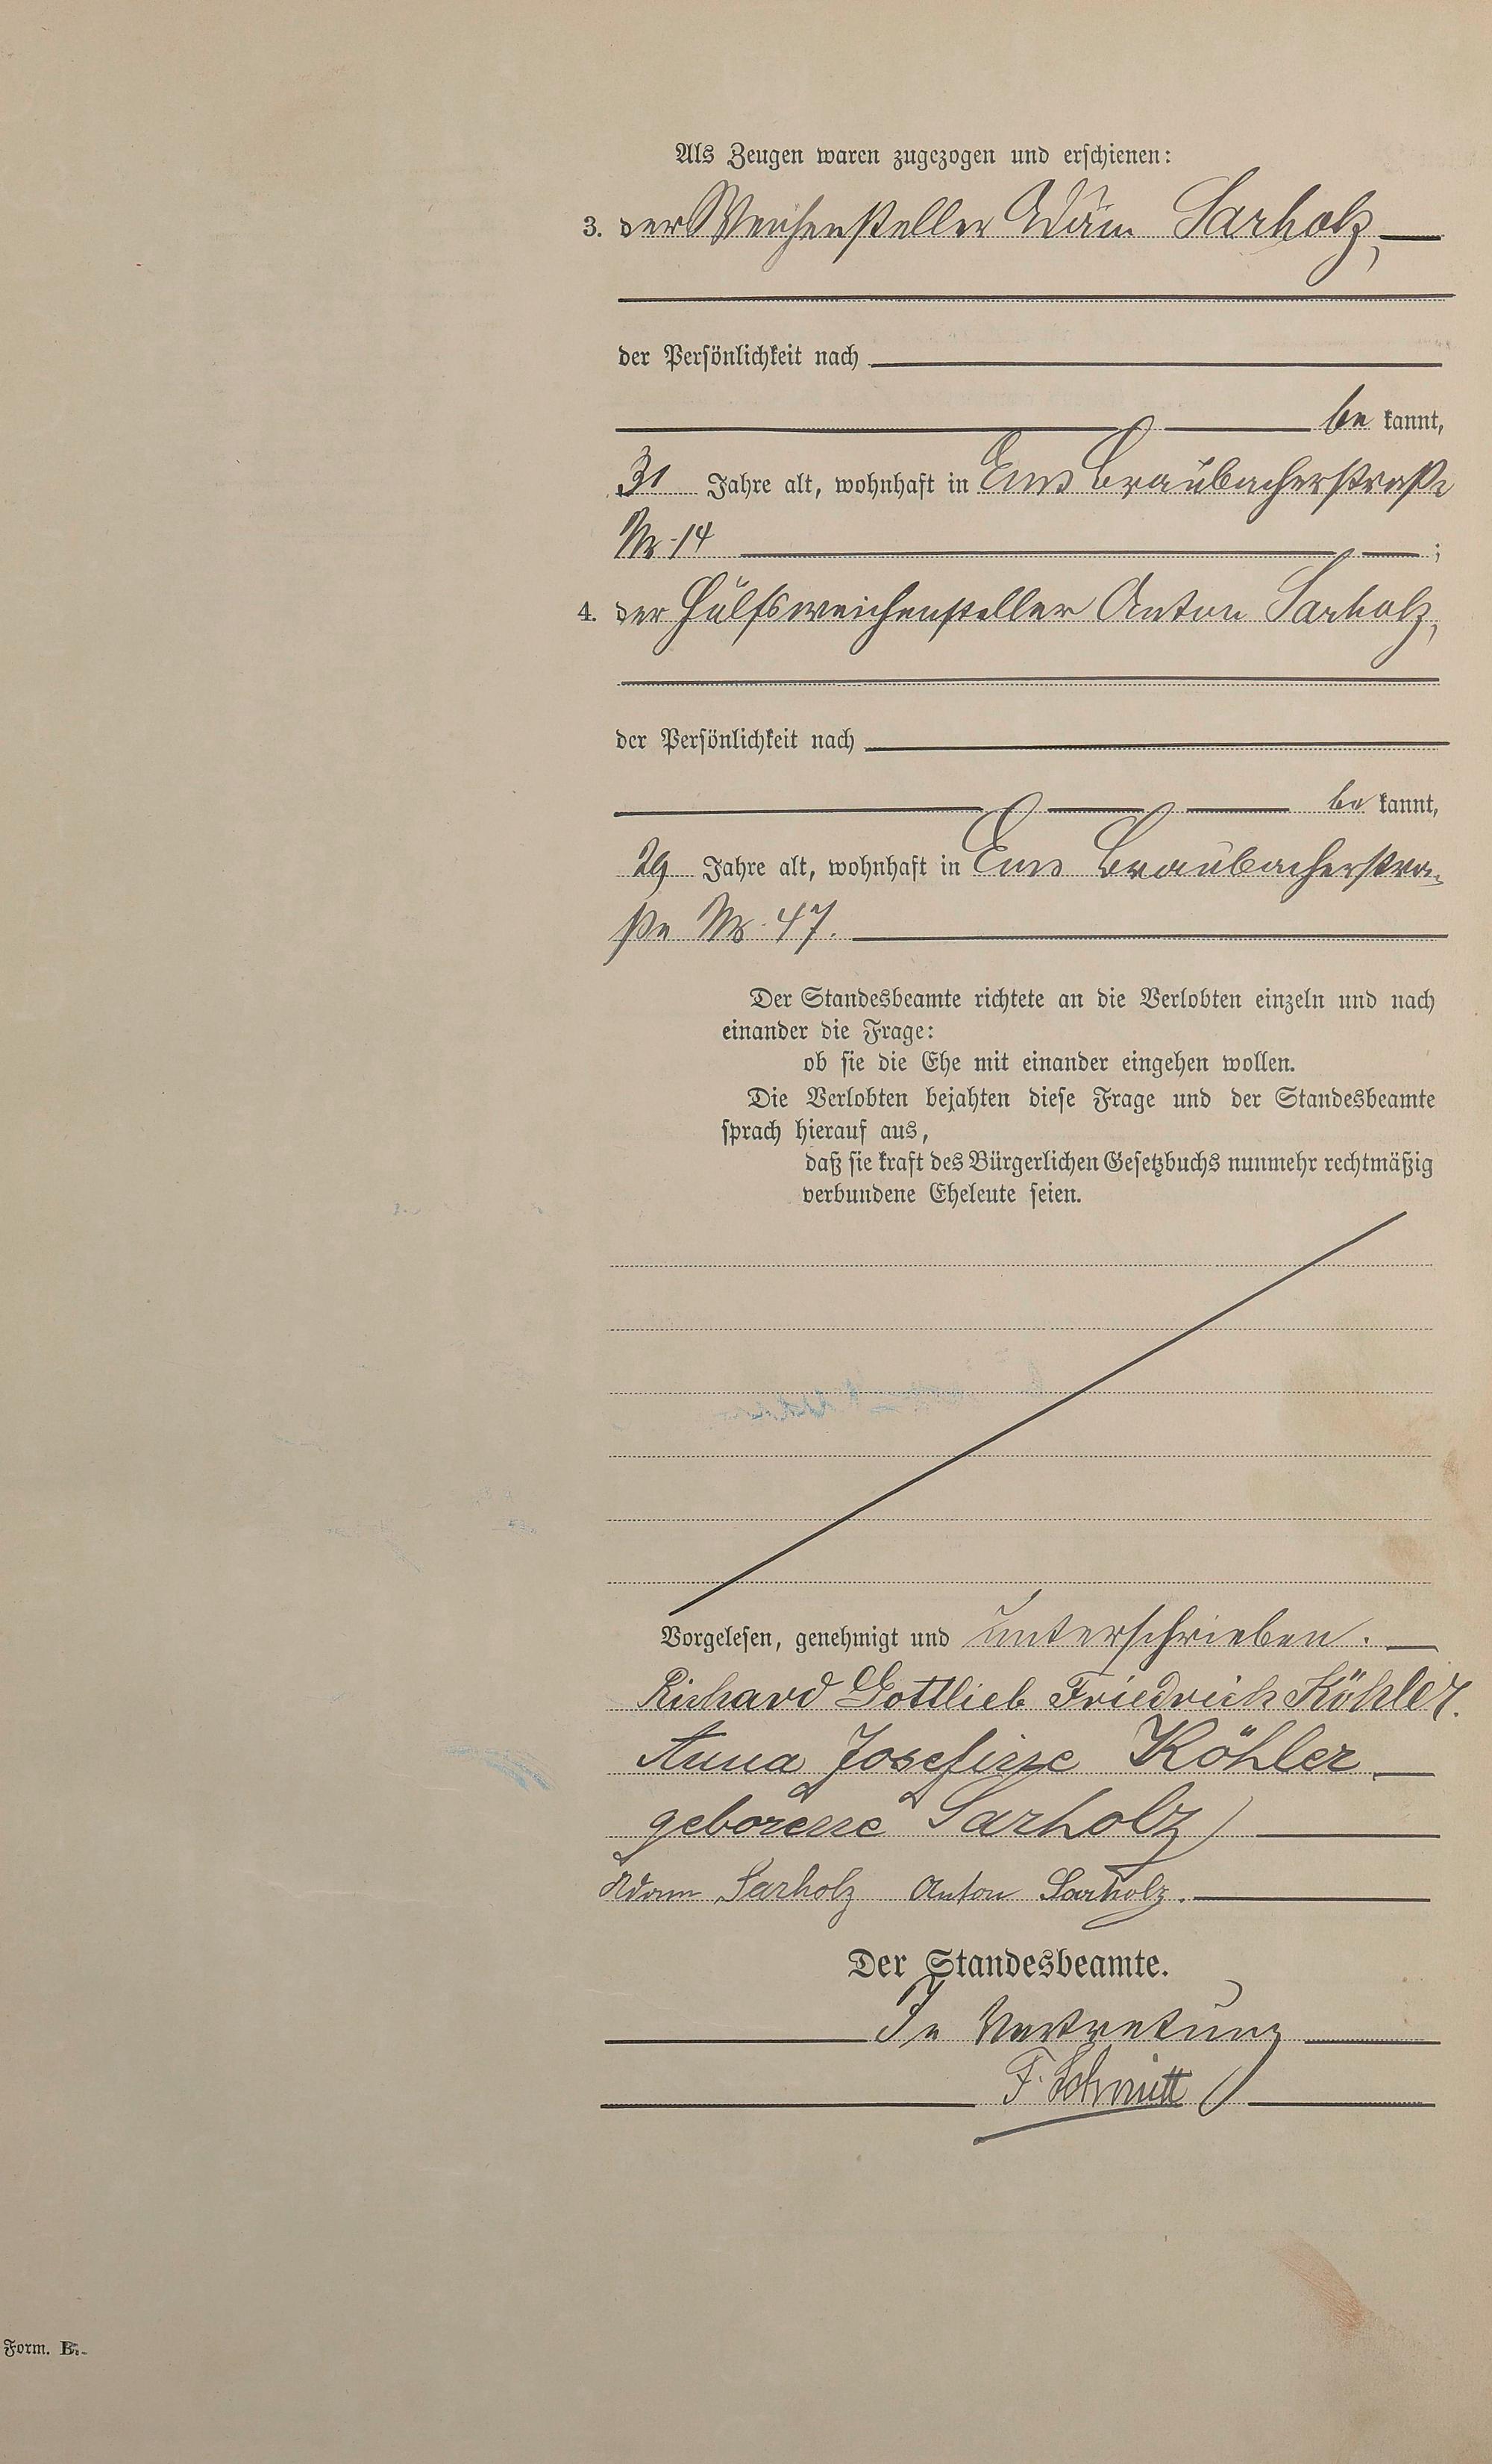 Als Zeugen waren zugezogen und erschienen:
3. der Weichensteller Adam Sarholz,
der Persönlichkeit nach
be kannt,
31 Jahre alt, wohnhaft in Ems Braubacherstraße
Nr. 14 ;
4. der Hülfsweichensteller Anton Sarholz,
der Persönlichkeit nach
be kannt,
29 Jahre alt, wohnhaft in Ems Braubacherstra-
ße Nr. 47.
Der Standesbeamte richtete an die Verlobten einzeln und nach
einander die Frage:
ob sie die Ehe mit einander eingehen wollen.
Die Verlobten bejahten diese Frage und der Standesbeamte
sprach hierauf aus,
daß sie kraft des Bürgerlichen Gesetzbuchs nunmehr rechtmäßig
verbundene Eheleute seien.
Vorgelesen, genehmigt und unterschrieben.
Richard Gottlieb Friedrich Köhler.
Anna Josefine Köhler
geborene Sarholz
Adam Sarholz Anton Sarholz.
Der Standesbeamte.
In Vertretung
F. Schmitt
Form. B.